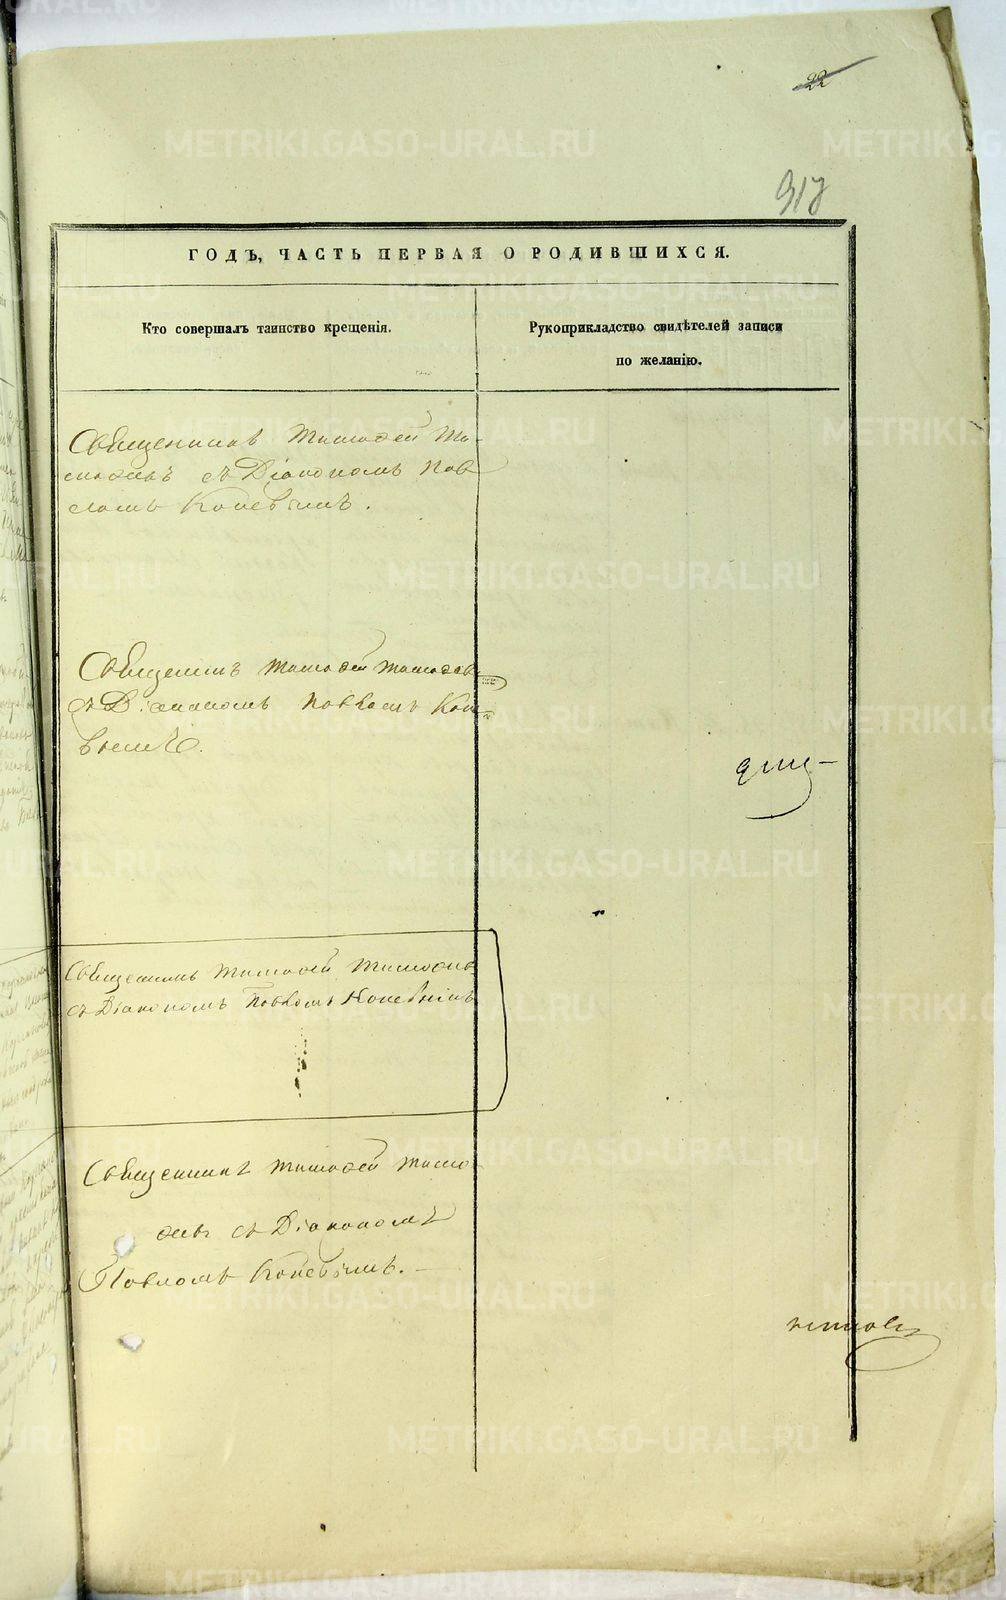 22
317
ГОДЪ, ЧАСТЬ ПЕРВАЯ О РОДИВШИХСЯ.
Кто совершалъ таинство крещенія.
Рукоприкладство свидѣтелей записи
по желанію.
Священникъ Тимофей Ти-
мофеевъ съ Діакономъ Пав
ломъ Коневимъ.
Священникъ Тимофей Тимофеев
съ Діакономъ Павломъ Коне
вымъ.
Священникъ Тимофей Тимофеев
съ Діакономъ Павломъ Коневнимъ
Священникъ Тимофей Тимо
феевъ съ Діакономъ
Павломъ Коневимъ.
METRIKI.GASO-URAL.RU